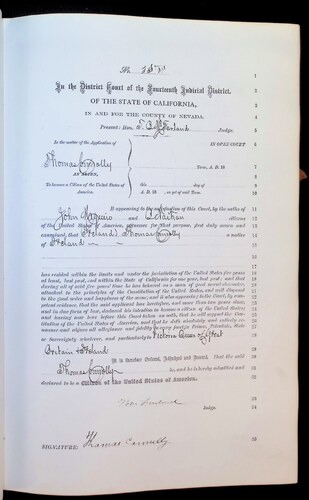 No.
In the District Court of the Fourteenth Judicial District,
OF THE STATE OF CALIFORNIA,
IN AND FOR THE COUNTY OF NEVADA.
Present: Hon. T. B. McFarland Judge.
In the matter of the Application of
IN OPEN COURT
Thomas Connolly
Term, A. D. 18
AN ALIEN,
To become a Citizen of the United States of America.
this day of
A. D. 18 , as yet of said Term.
It appearing to the satisfaction of this Court, by the oaths of
John and citizens
of the United States of America, witnesses for that purpose, first duly sworn and
examined, that Thomas Connolly a native
of Ireland
has resided within the limits and under the jurisdiction of the United States five years
at least, last past, and within the State of California for one year, last past; and that
during all of said five years' time he has behaved as a man of good moral character,
attached to the principles of the Constitution of the United States, and well disposed
to the good order and happiness of the same; and it also appearing to the Court, by com-
petent evidence, that the said applicant has heretofore, and more than two years since,
and in due form of law, declared his intention to become a citizen of the United States;
and having now here before this Court taken an oath, that he will support the Con-
stitution of the United States of America, and that he doth absolutely and entirely re-
nounce and abjure all allegiance and fidelity to every foreign Prince, Potentate, State
or Sovereignty whatever, and particularly to Victoria Queen of Great
Britain & Ireland
It is therefore Ordered, Adjudged and Decreed, That the said
Thomas Connolly be, and he is hereby admitted and
declared to be a Citizen of the United States of America.
Judge.
SIGNATURE: Thomas Connolly
1
2
3
4
5
6
7
8
9
10
11
12
13
14
15